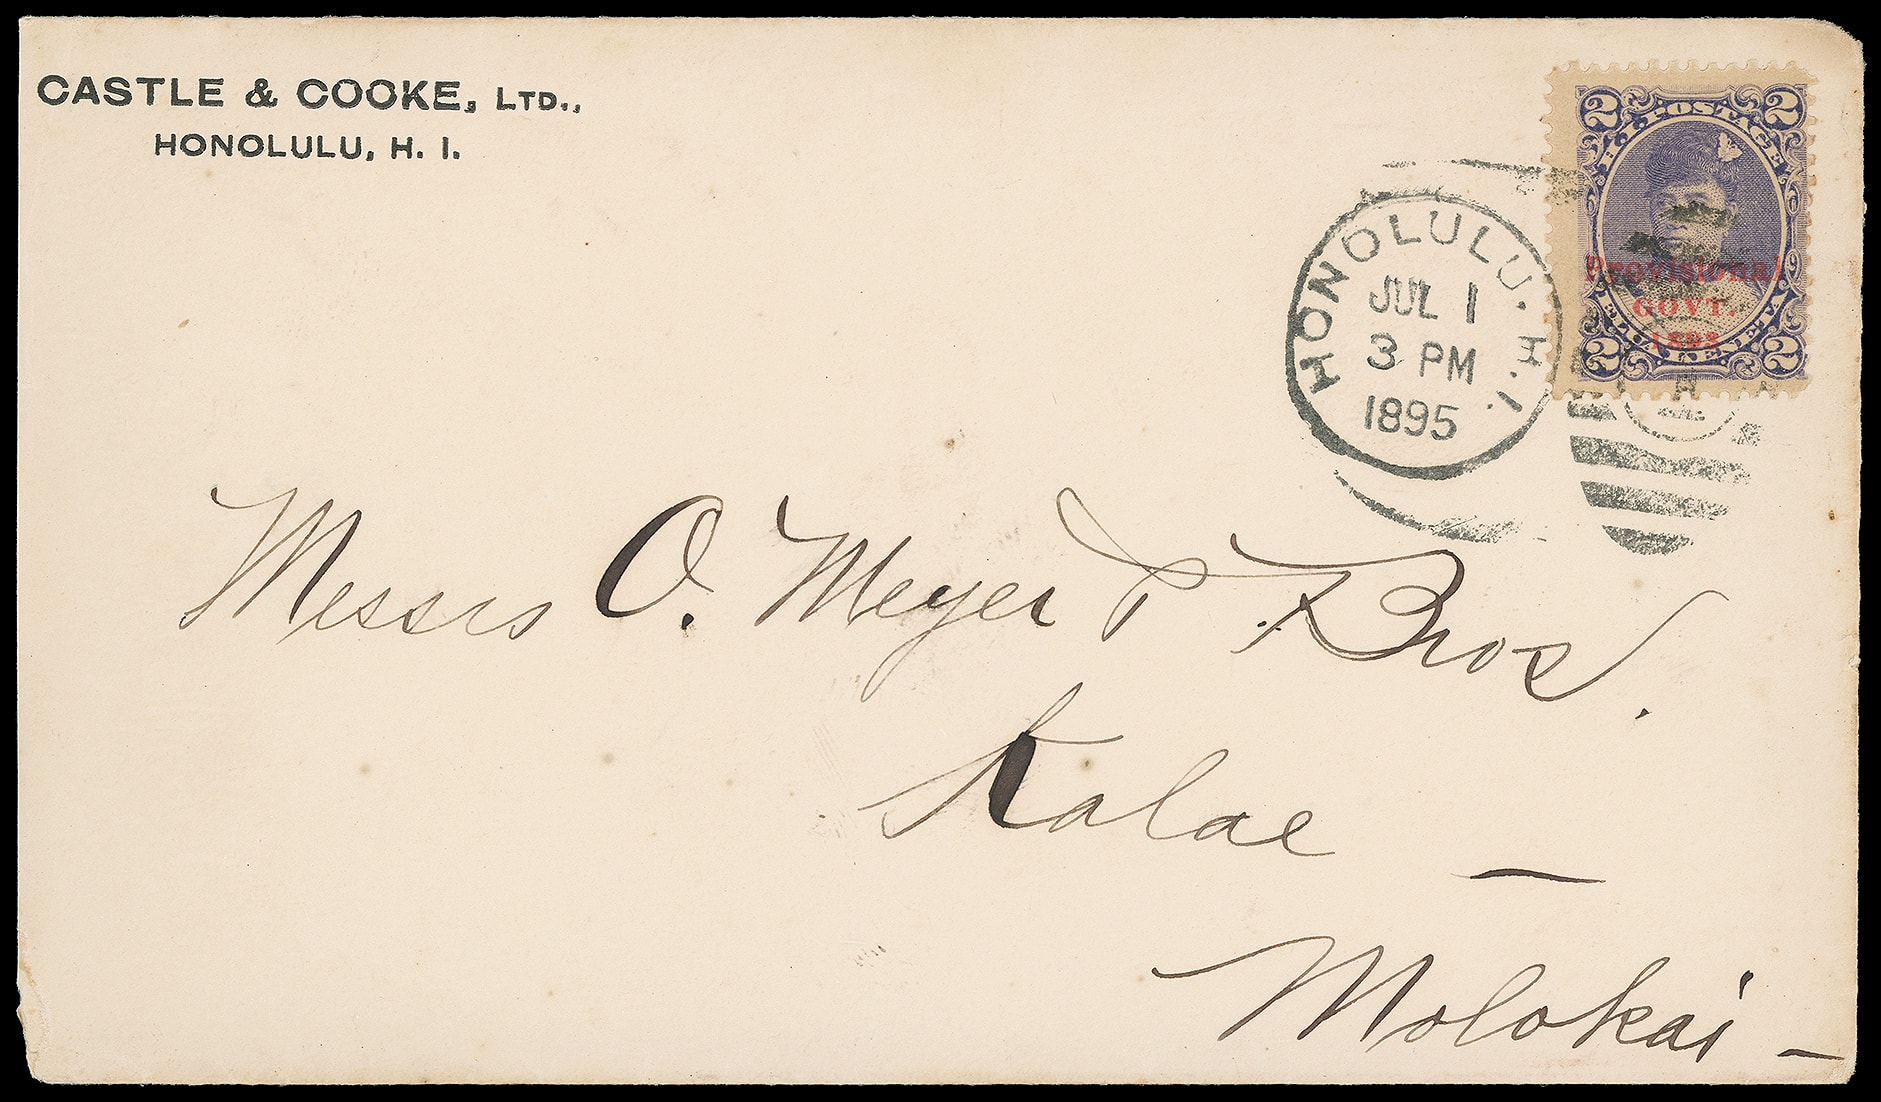 CASTLE & COOKE, LTD.,
HONOLULU, H. I.
2 H.I. POSTAGE 2
Provisional
GOVT.
1893
2 ELUA KENETA 2
HONOLULU. H. I.
JUL 1
3 PM
1895
Messrs O. Meyer & Bros.
Kalae –
Molokai –